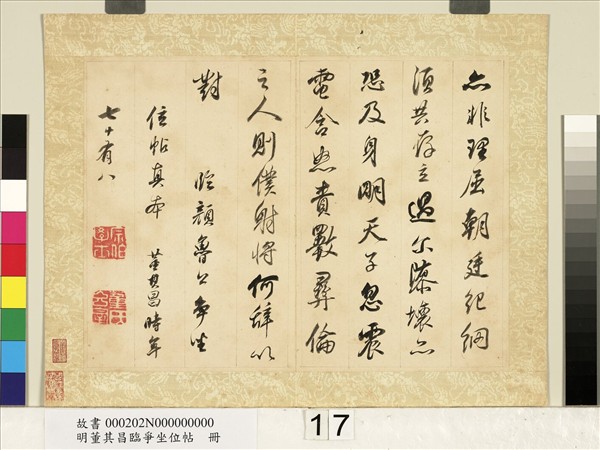 亦非理屈朝廷紀綱
須共存立過爾隳壞亦
恐及身明天子忽震
電含怒責數彝倫
之人則僕射將何辭以
對 臨顏魯公爭坐
位帖真本 董其昌時年
七十有八
宗伯學士
董氏玄宰
故書 000202N000000000
明董其昌臨爭坐位帖 冊
17